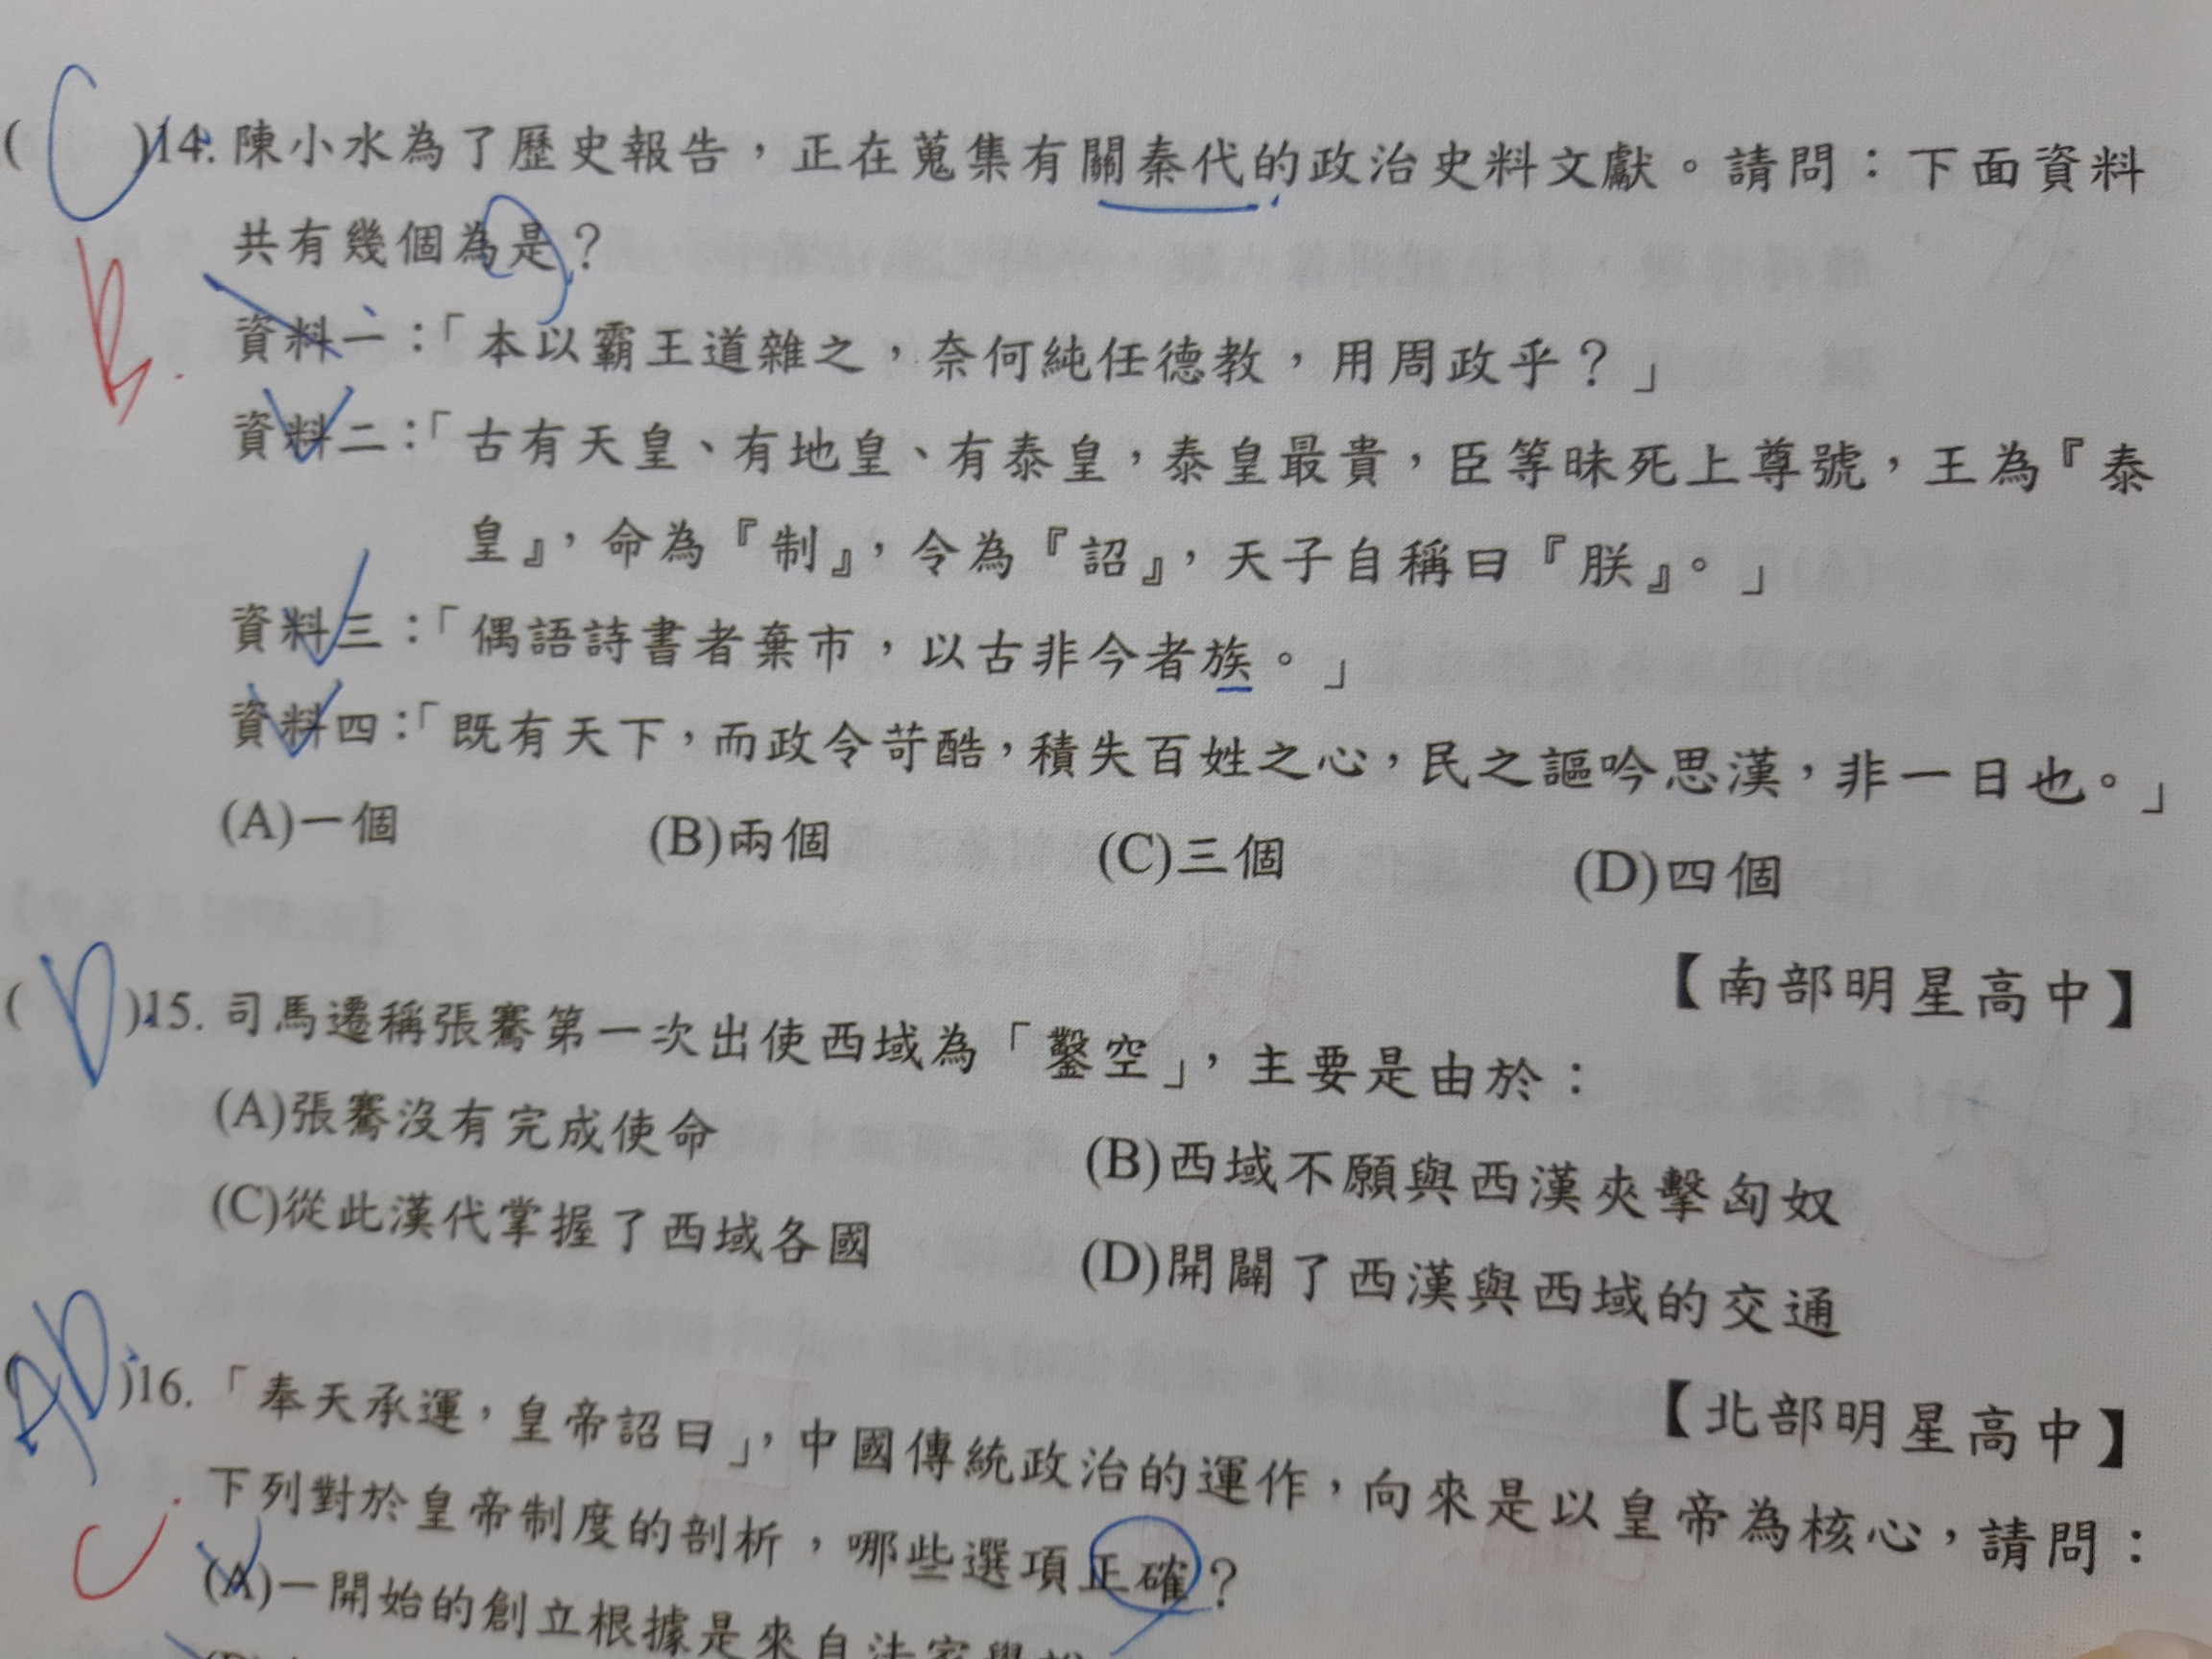 ( C )14. 陳小水為了歷史報告，正在蒐集有關秦代的政治史料文獻。請問：下面資料
共有幾個為是？
B.
資料一：「本以霸王道雜之，奈何純任德教，用周政乎？」
資料二：「古有天皇、有地皇、有泰皇，泰皇最貴，臣等昧死上尊號，王為『泰
皇』，命為『制』，令為『詔』，天子自稱曰『朕』。」
資料三：「偶語詩書者棄市，以古非今者族。」
資料四：「既有天下，而政令苛酷，積失百姓之心，民之謳吟思漢，非一日也。」
(A)一個 (B)兩個 (C)三個 (D)四個
【南部明星高中】
( D )15. 司馬遷稱張騫第一次出使西域為「鑿空」，主要是由於：
(A)張騫沒有完成使命 (B)西域不願與西漢夾擊匈奴
(C)從此漢代掌握了西域各國 (D)開闢了西漢與西域的交通
【北部明星高中】
( AD )16. 「奉天承運，皇帝詔曰」，中國傳統政治的運作，向來是以皇帝為核心，請問：
下列對於皇帝制度的剖析，哪些選項正確？
C
(A)一開始的創立根據是來自法家學說